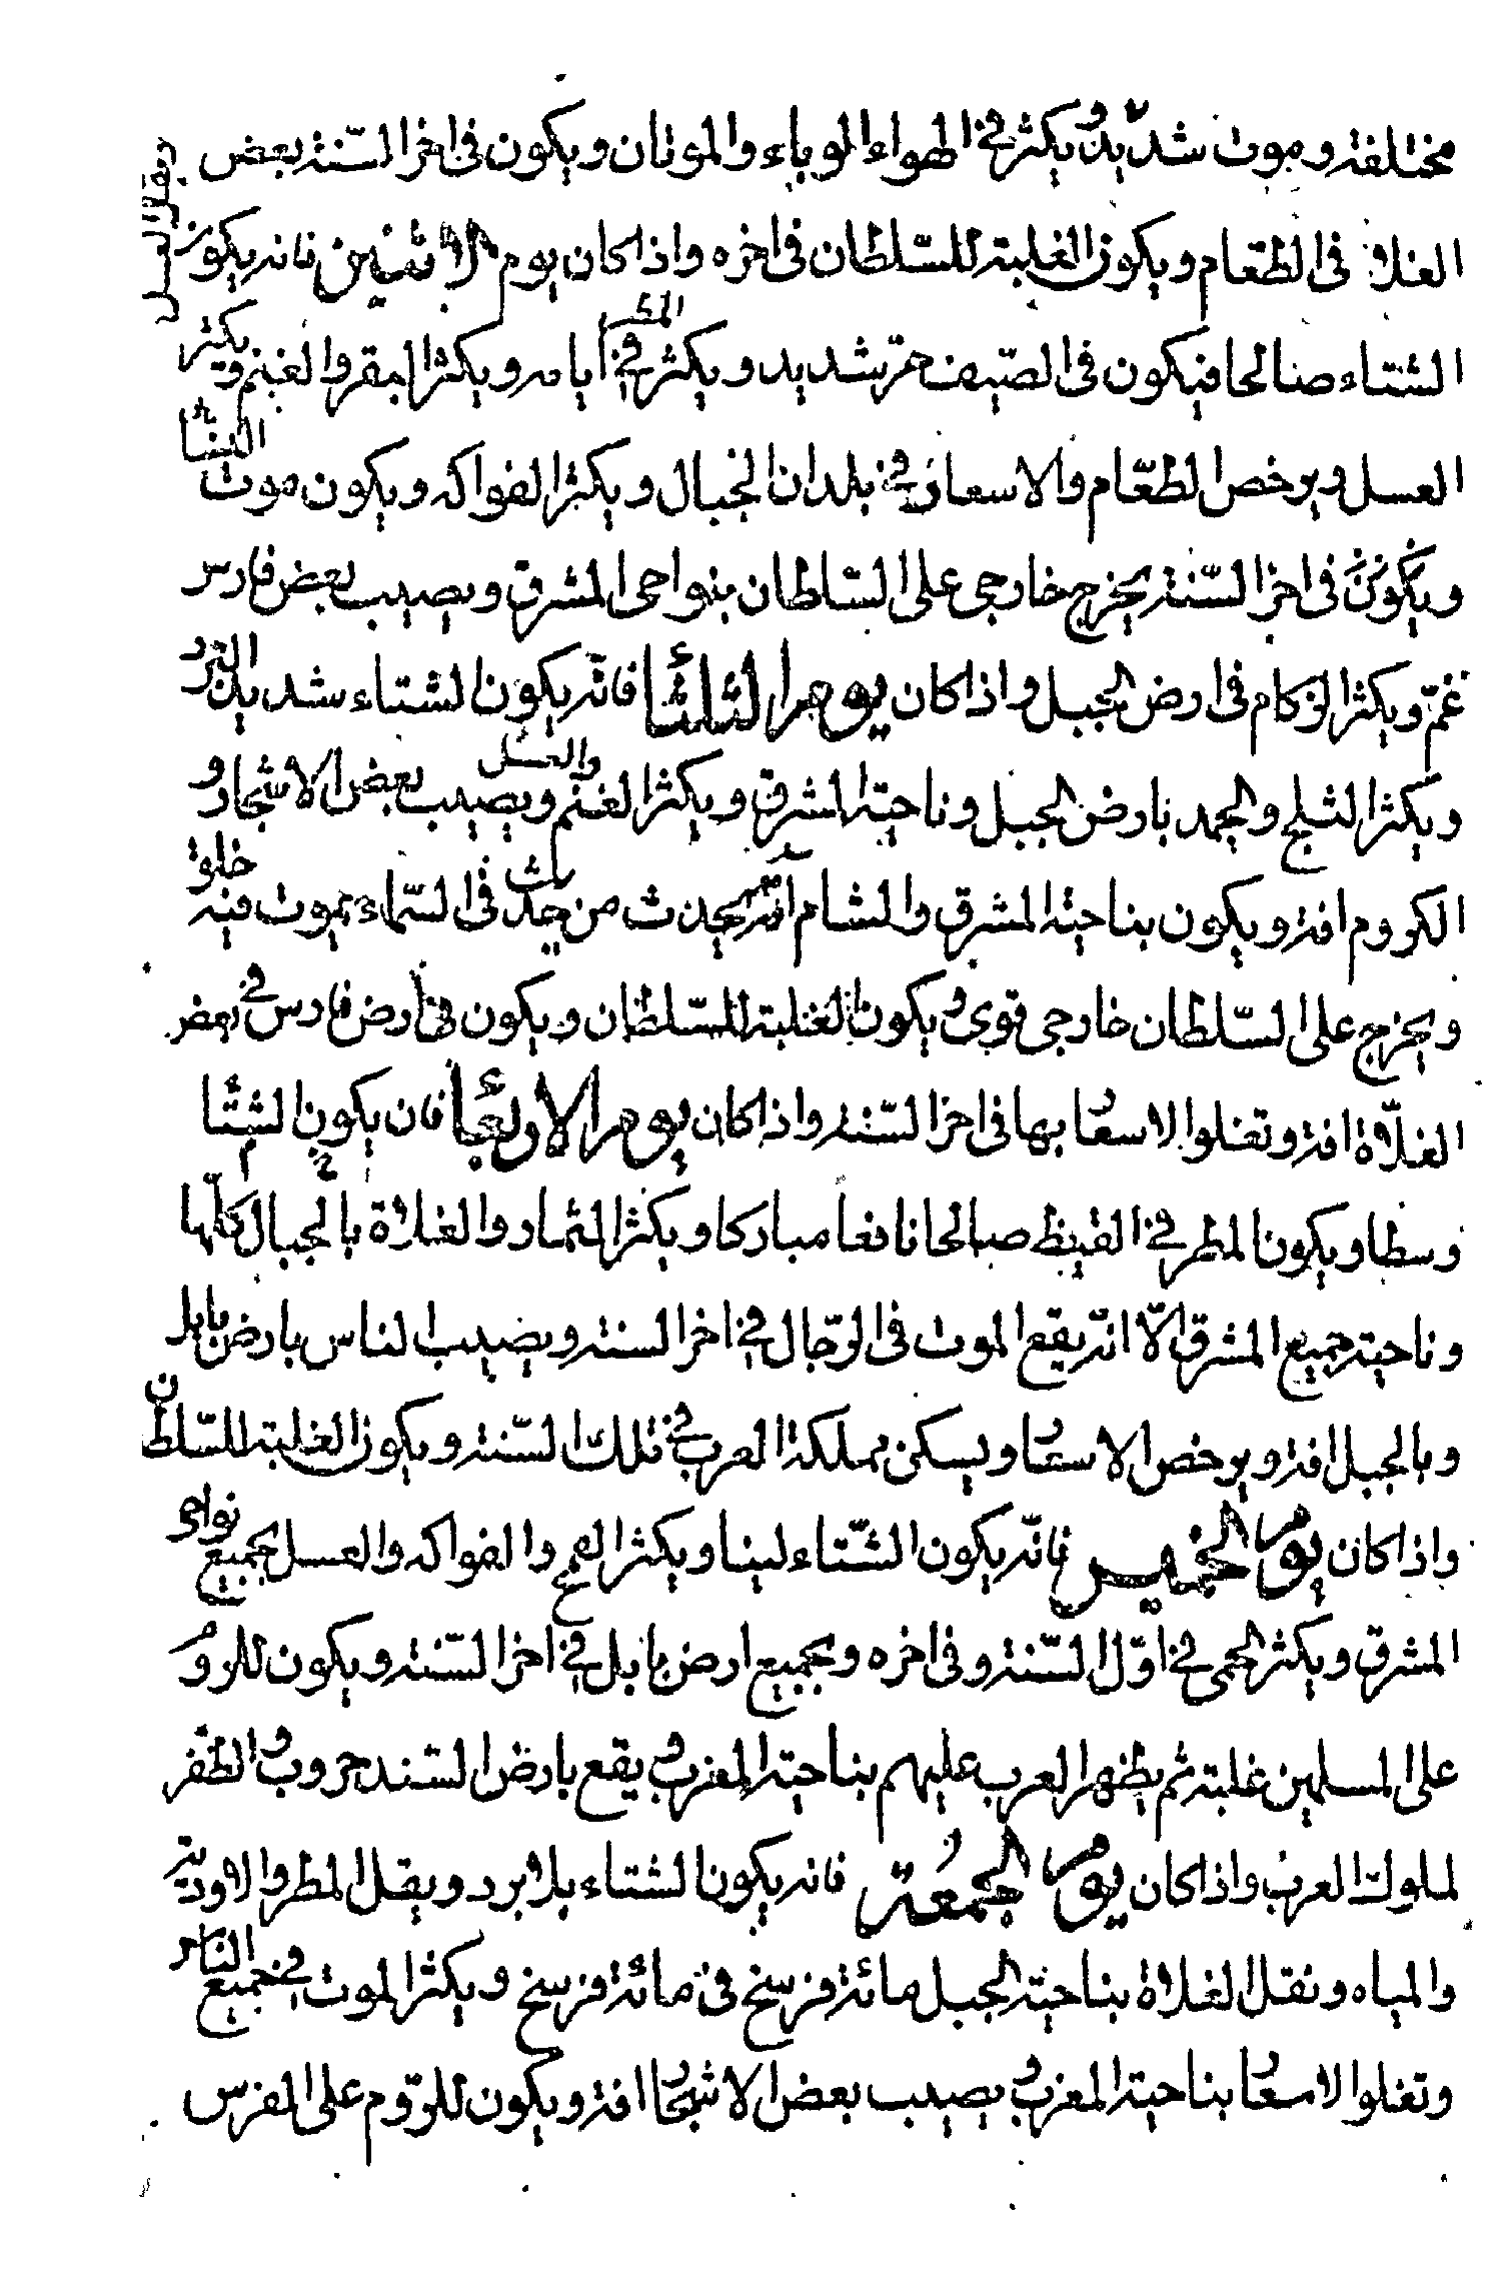 مختلفة وموت شديد ويكثر في الهواء الوباء والموتان ويكون في اخر السّنة بعض
الغلاء في الطعام ويكون الغلبة للسّلطان في اخره واذا كان يوم الاثنين فانه يكون
الشتاء صالحا فيكون في الصّيف حرّ شديد ويكثر المطر في ايامه ويكثر البقر والغنم ويكثر
العسل ويرخص الطعّام والاسعار في بلدان الجبال ويكثر الفواكه ويكون موت النساء
ويكون في اخر السّنة يخرج خارجى على السّلطان بنواحى المشرق ويصيب بعض فارس
غمّ ويكثر الزكام في ارض الجبل واذا كان يوم الثلثاء فانّه يكون الشتاء شديد البرد
ويكثر الثلج والجمد بارض الجبل وناحية المشرق ويكثر الغنم والعسل ويصيب بعض الاشجار و
الكروم افة ويكون بناحية المشرق والشام امر يحدث من حدث في السّماء يموت فيه خلق
ويخرج على السّلطان خارجى قوى ويكون الغلبة للسّلطان ويكون في ارض فارس في بعض
الغلاّة افة وتغلوا الاسعار بها في اخر السّنة واذا كان يوم الاربعاء فان يكون الشتاء
وسطا ويكون المطر في القيظ صالحا نافعا مباركا ويكثر الثمار والغلاة بالجبال كلّها
وناحية جميع المشرق الّا انّه يقع الموت في الرّجال في اخر السنة ويصيب الناس بارض بابل
وبالجبل افة ويرخص الاسعار ويسكن مملكة العرب في تلك السّنة ويكون الغلبة للسّلطان
واذا كان يوم الخميس فانّه يكون الشّتاء لينا ويكثر القمح والفواكه والعسل بجميع نواحى
المشرق ويكثر الحمى في اوّل السّنة وفي اخره وبجميع ارض بابل في اخر السّنة ويكون للروم
على المسلمين غلبة ثم يظهر العرب عليهم بناحية المغرب ويقع بارض السّند حروب والظفر
لملوك العرب واذا كان يوم الجمعة فانه يكون الشتاء بلا برد ويقل المطر والاودية
والمياه وتقل الغلاة بناحية الجبل مائة فرسخ في مائة فرسخ ويكثر الموت في جميع الناس
وتغلوا الاسعار بناحية المغرب ويصيب بعض الاشجار افة ويكون للرّوم على الفرس